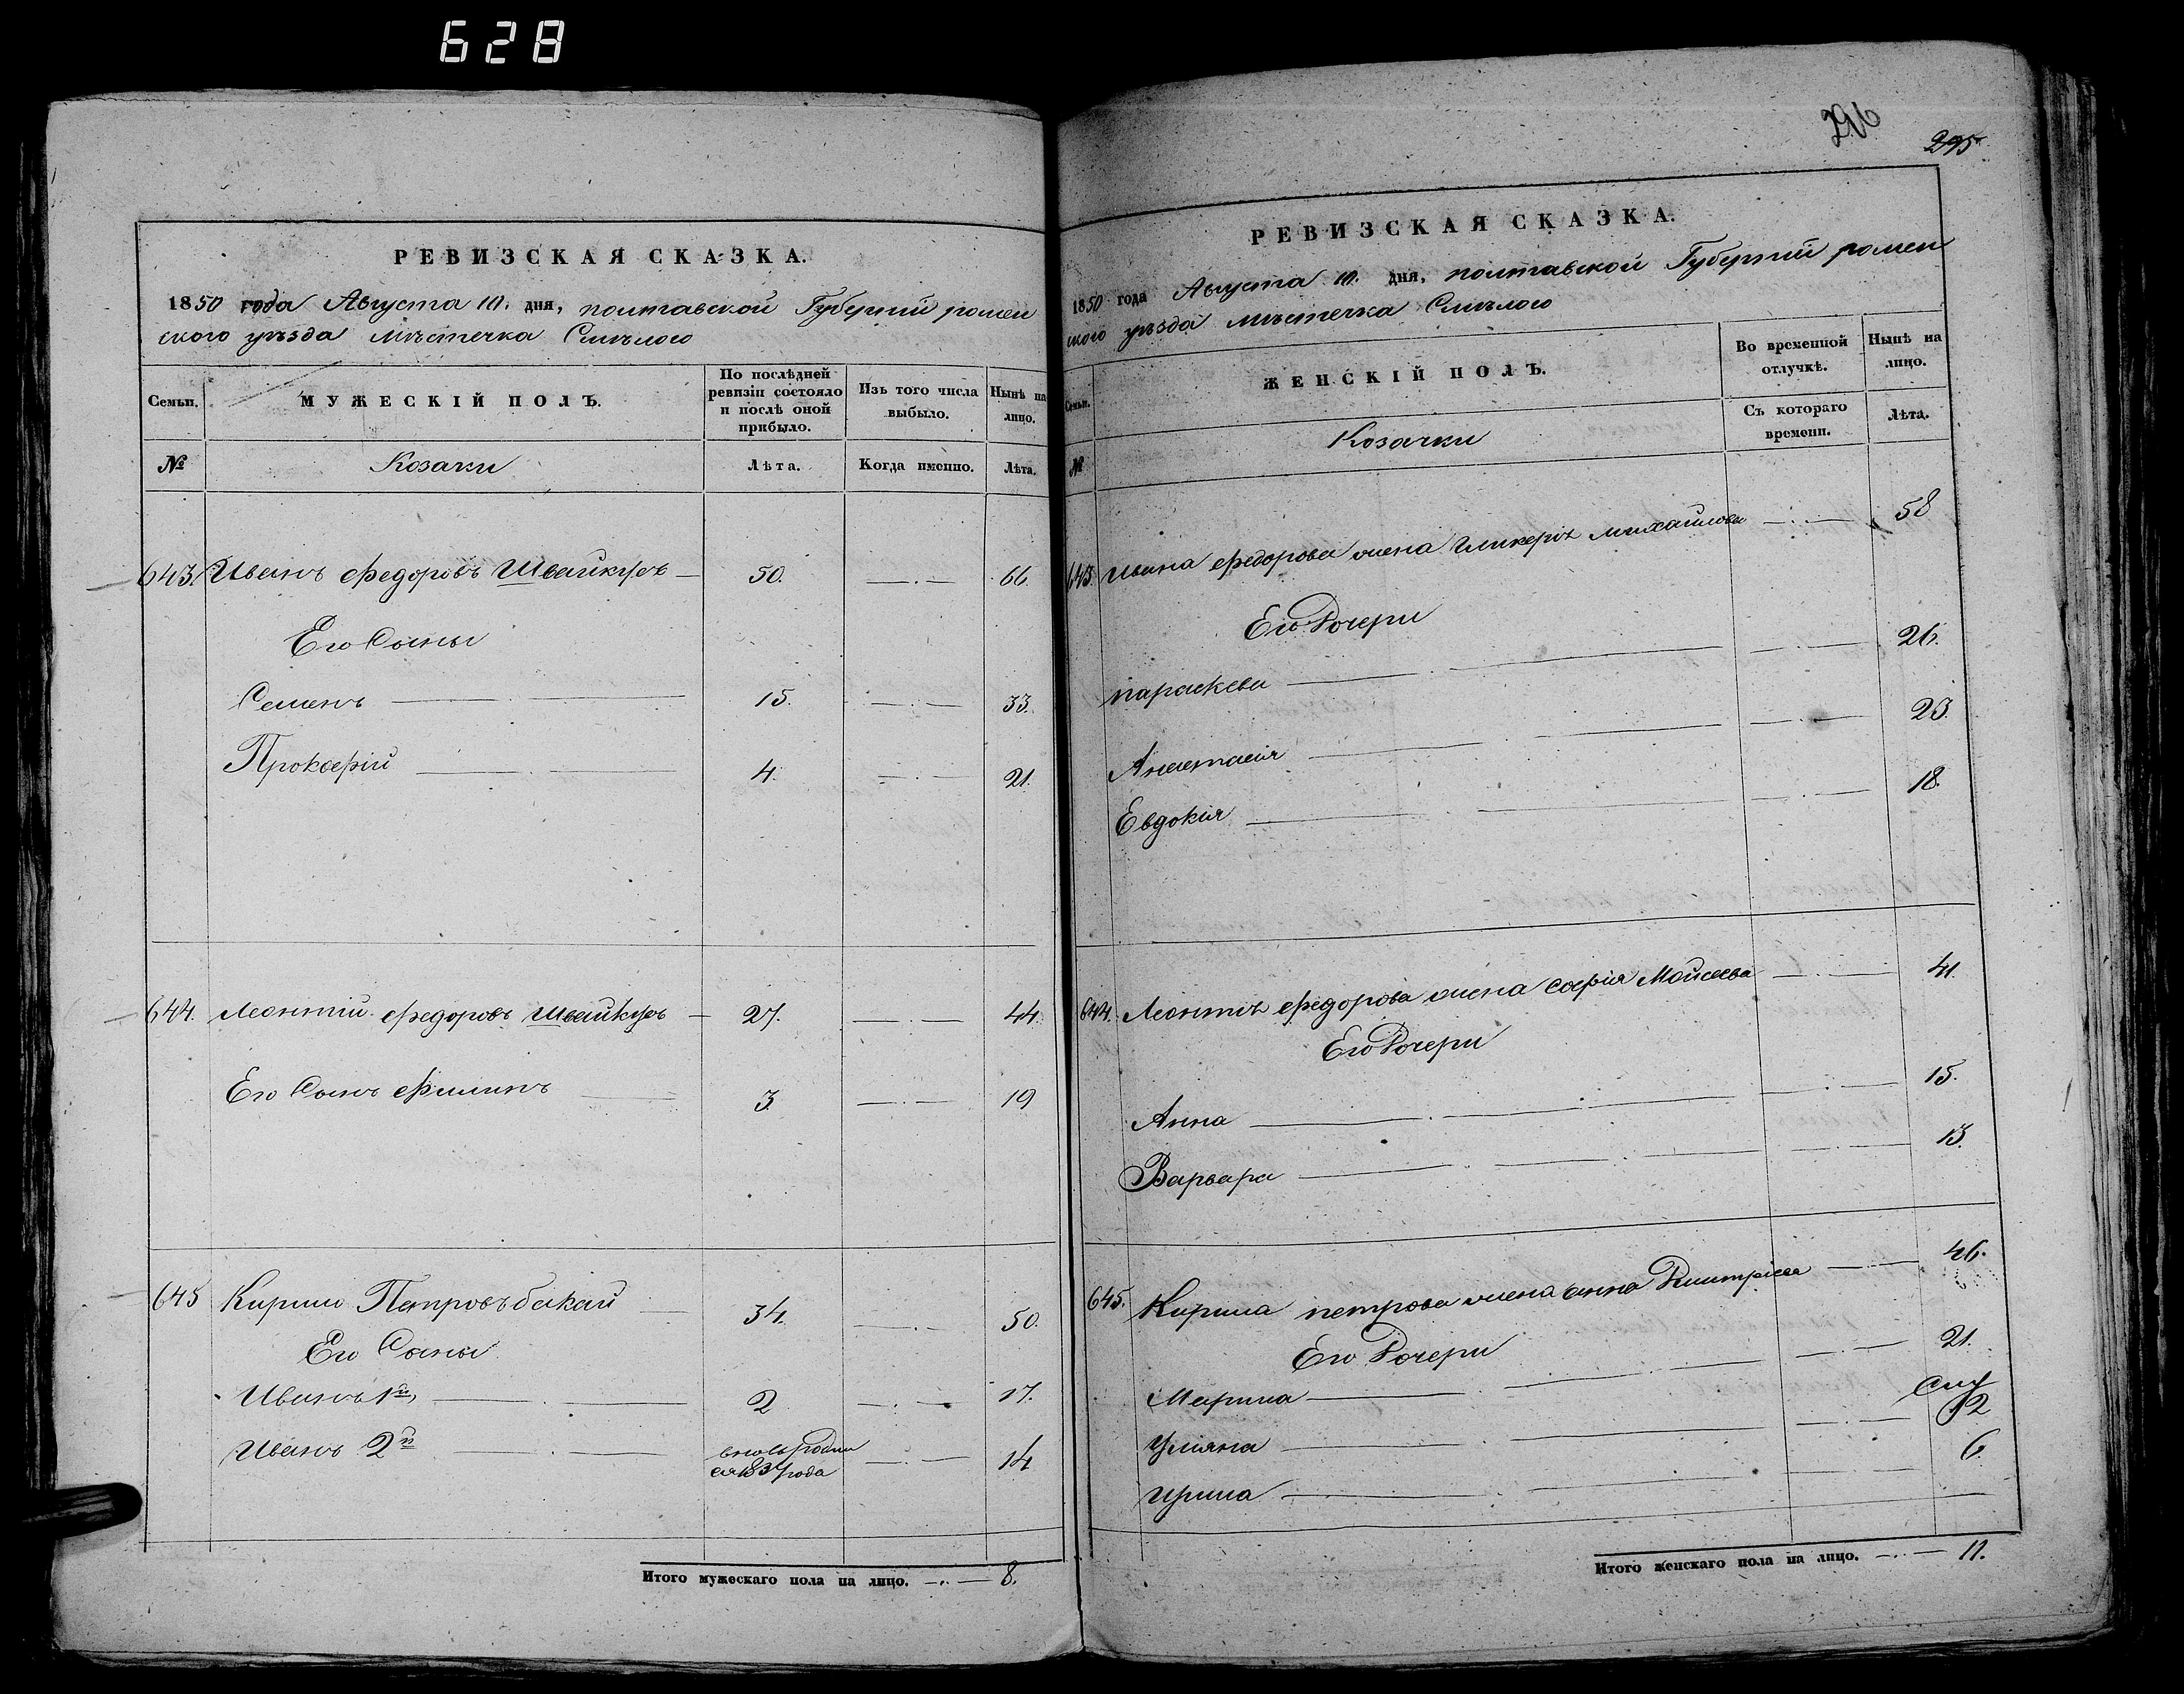 628
295
РЕВИЗСКАЯ СКАЗКА.
1850 года Августа 10. дня, полтавской Губерніи ромен
ского уѣзда мѣстечка Смѣлого
Семьи.
МУЖЕСКІЙ ПОЛЪ.
По послѣдней ревизіи состояло и послѣ оной прибыло.
Изъ того числа выбыло.
Нынѣ на лицо.
№
Козаки
Лѣта.
Когда именно.
Лѣта.
643. Иванъ Федоровъ 50. 66.
Его Сыны
Семенъ 15. 33.
Прокофій 4. 21.
644. Леонтий Федоровъ 27. 44.
Его Сынъ Филипъ 3. 19
645 Кирило Петровъ бакай 34. 50.
Его Сыны
Иванъ 1й, 2 17.
Иванъ 2й вновь родил
ся 1837 года 14
Итого мужескаго пола на лицо. 8.
РЕВИЗСКАЯ СКАЗКА.
1850 года Августа 10. дня, полтавской Губерніи ромен
ского уѣзда мѣстечка Смѣлого
Семьи.
ЖЕНСКІЙ ПОЛЪ.
Во временной отлучкѣ.
Нынѣ на лицо.
№
Козачки
Съ котораго времени.
Лѣта.
643. Ивана Федорова жена Гликерія Михайлова 58
Его Дочери
параскева 26.
Анастасія 23.
Евдокія 18.
644. Леонтія Федорова жена Софія Мойсеева 41
Его Дочери
Анна 15.
Варвара 13.
645. Кирила петрова жена анна Дмитріева 46.
Его Дочери
Марина 21.
Уліяна 12
Ирина 6.
Итого женскаго пола на лицо. 11.